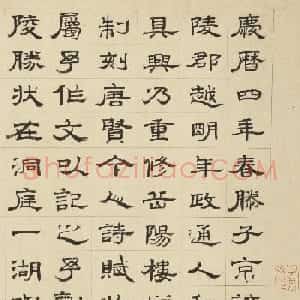 慶曆四年春滕子京
陵郡越明年政通人
具興乃重修岳陽樓
制刻唐賢今人詩賦
屬予作文以記之予
陵勝狀在洞庭一湖